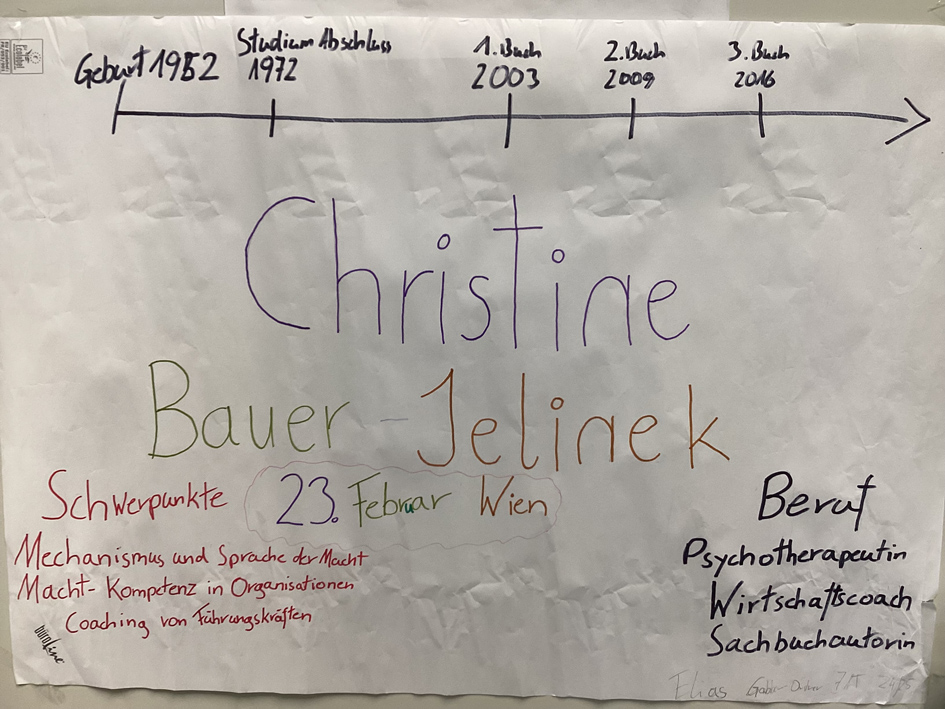 Geburt 1952
Studium Abschluss
1972
1. Buch
2003
2. Buch
2009
3. Buch
2016
Christine
Bauer-Jelinek
23. Februar Wien
Schwerpunkte
Mechanismus und Sprache der Macht
Macht-Kompetenz in Organisationen
Coaching von Führungskräften
Beruf
Psychotherapeutin
Wirtschaftscoach
Sachbuchautorin
Elias